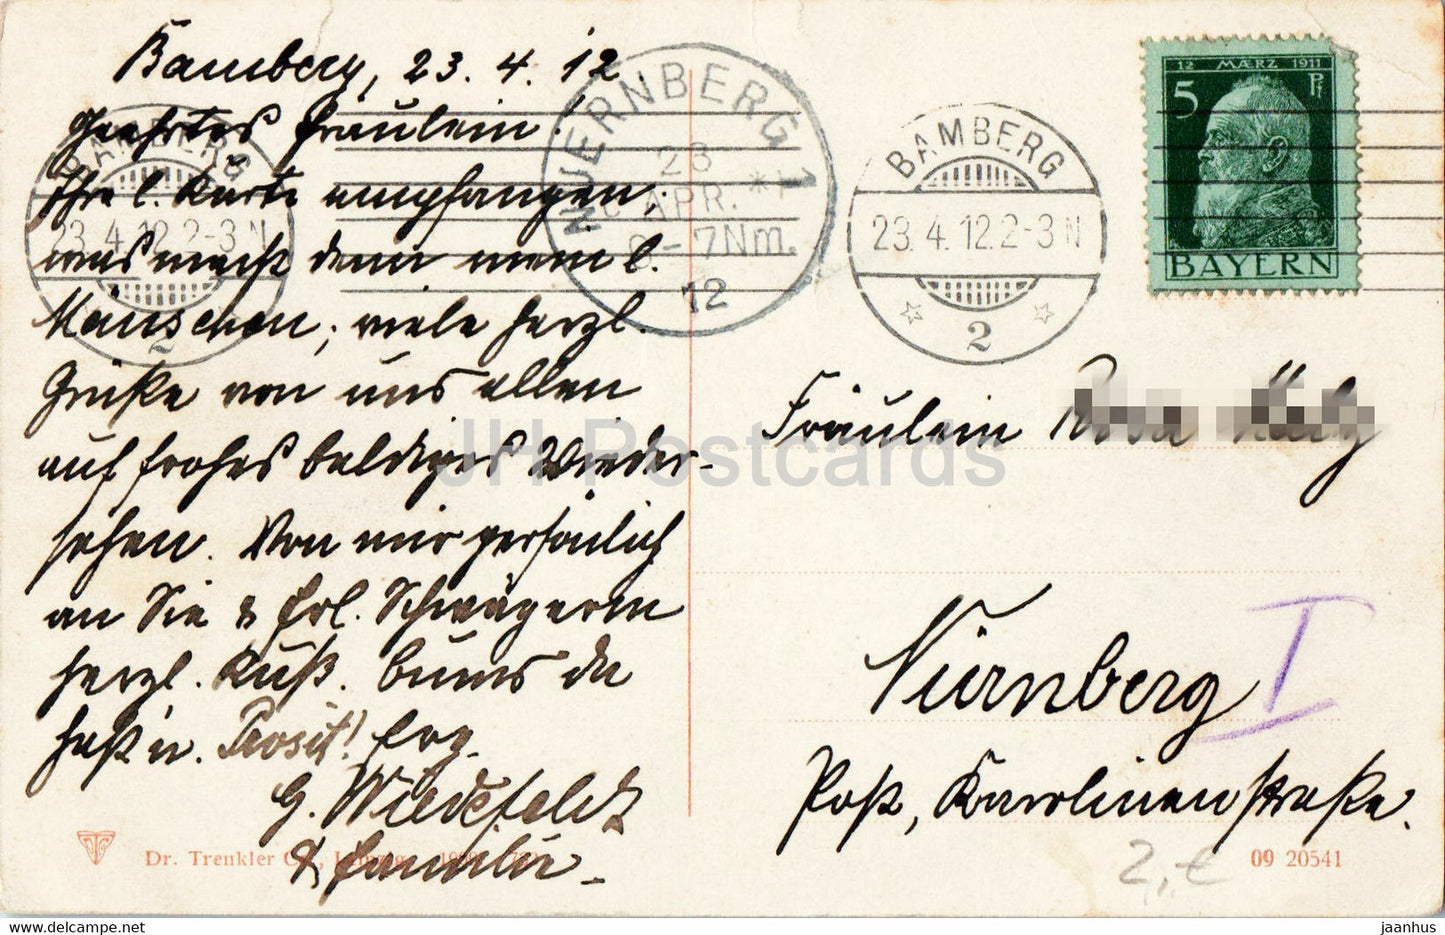 Bamberg, 23. 4. 12
Geehrtes Fräulein!
Ihre l. Karte empfangen,
was macht denn mein l.
Mäuschen, viele herzl.
Grüße von uns allen
auf frohes baldiges Wieder-
sehen. Von mir persönlich
an Sie & Frl. Schwägerin
herzl. Kuß.
Prosit! Erg.
G. Wiedefeldt
& Familie
Dr. Trenkler Co., Leipzig.
BAMBERG
23.4.12.2-3 N
2
NUERNBERG 1
23 APR.
-7Nm.
12
BAMBERG
23.4.12.2-3 N
2
12 MÆRZ 1911
5 Pf
BAYERN
Fräulein
Nürnberg I
Post, Karolinenstraße.
2,- €
09 20541
JH Postcards
www.delcampe.net
jaanhus